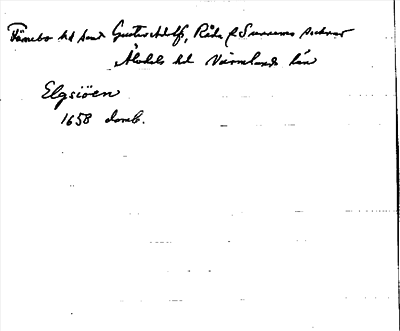 Färnebo hd samt Gustav Adolf, Råda & Sunnemo socknar
Älvdals hd Värmlands län
Elgsiöen
1658 domb.